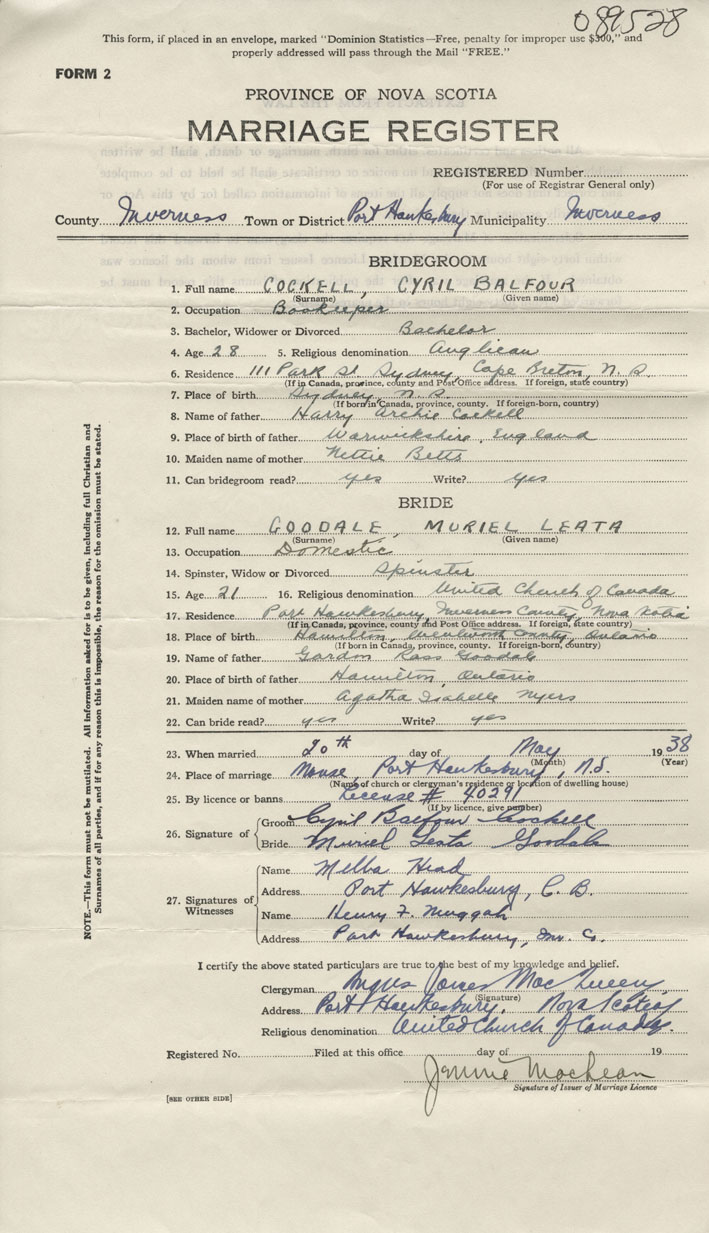 089528
This form, if placed in an envelope, marked "Dominion Statistics—Free, penalty for improper use $300," and
properly addressed will pass through the Mail "FREE."
FORM 2
PROVINCE OF NOVA SCOTIA
MARRIAGE REGISTER
REGISTERED Number
(For use of Registrar General only)
County Inverness Town or District Port Hawkesbury Municipality Inverness
BRIDEGROOM
1. Full name COCKELL, CYRIL BALFOUR
(Surname) (Given name)
2. Occupation Bookeeper
3. Bachelor, Widower or Divorced Bachelor
4. Age 28 5. Religious denomination Anglican
6. Residence 111 Park St. Sydney, Cape Breton, N. S.
(If in Canada, province, county and Post Office address. If foreign, state country)
7. Place of birth Sydney, N. S.
(If born in Canada, province, county. If foreign-born, country)
8. Name of father Harry Archie Cockell
9. Place of birth of father Warwickshire, England
10. Maiden name of mother Nettie Betts
11. Can bridegroom read? yes Write? yes
BRIDE
12. Full name GOODALE, MURIEL LEATA
(Surname) (Given name)
13. Occupation Domestic
14. Spinster, Widow or Divorced Spinster
15. Age 21 16. Religious denomination United Church of Canada
17. Residence Port Hawkesbury, Inverness County, Nova Scotia
(If in Canada, province, county and Post Office address. If foreign, state country)
18. Place of birth Hamilton, Wentworth County, Ontario
(If born in Canada, province, county. If foreign-born, country)
19. Name of father Gordon Ross Goodale
20. Place of birth of father Hamilton, Ontario
21. Maiden name of mother Agatha Isabelle Myers
22. Can bride read? yes Write? yes
23. When married 20th day of May 1938
(Month) (Year)
24. Place of marriage Manse, Port Hawkesbury, N.S.
(Name of church or clergyman's residence or location of dwelling house)
25. By licence or banns License # 40291
(If by licence, give number)
26. Signature of Groom Cyril Balfour Cockell
Bride Muriel Leata Goodale
27. Signatures of Witnesses
Name Melba Head
Address Port Hawkesbury, C. B.
Name Henry F. Muggah
Address Port Hawkesbury, Inv. Co.
I certify the above stated particulars are true to the best of my knowledge and belief.
Clergyman Angus James MacQueen
(Signature)
Address Port Hawkesbury, Nova Scotia
Religious denomination United Church of Canada
Registered No. Filed at this office day of 19
Jennie MacLean
Signature of Issuer of Marriage Licence
[SEE OTHER SIDE]
NOTE.—This form must not be mutilated. All information asked for is to be given, including full Christian and
Surnames of all parties, and if for any reason this is impossible, the reason for the omission must be stated.